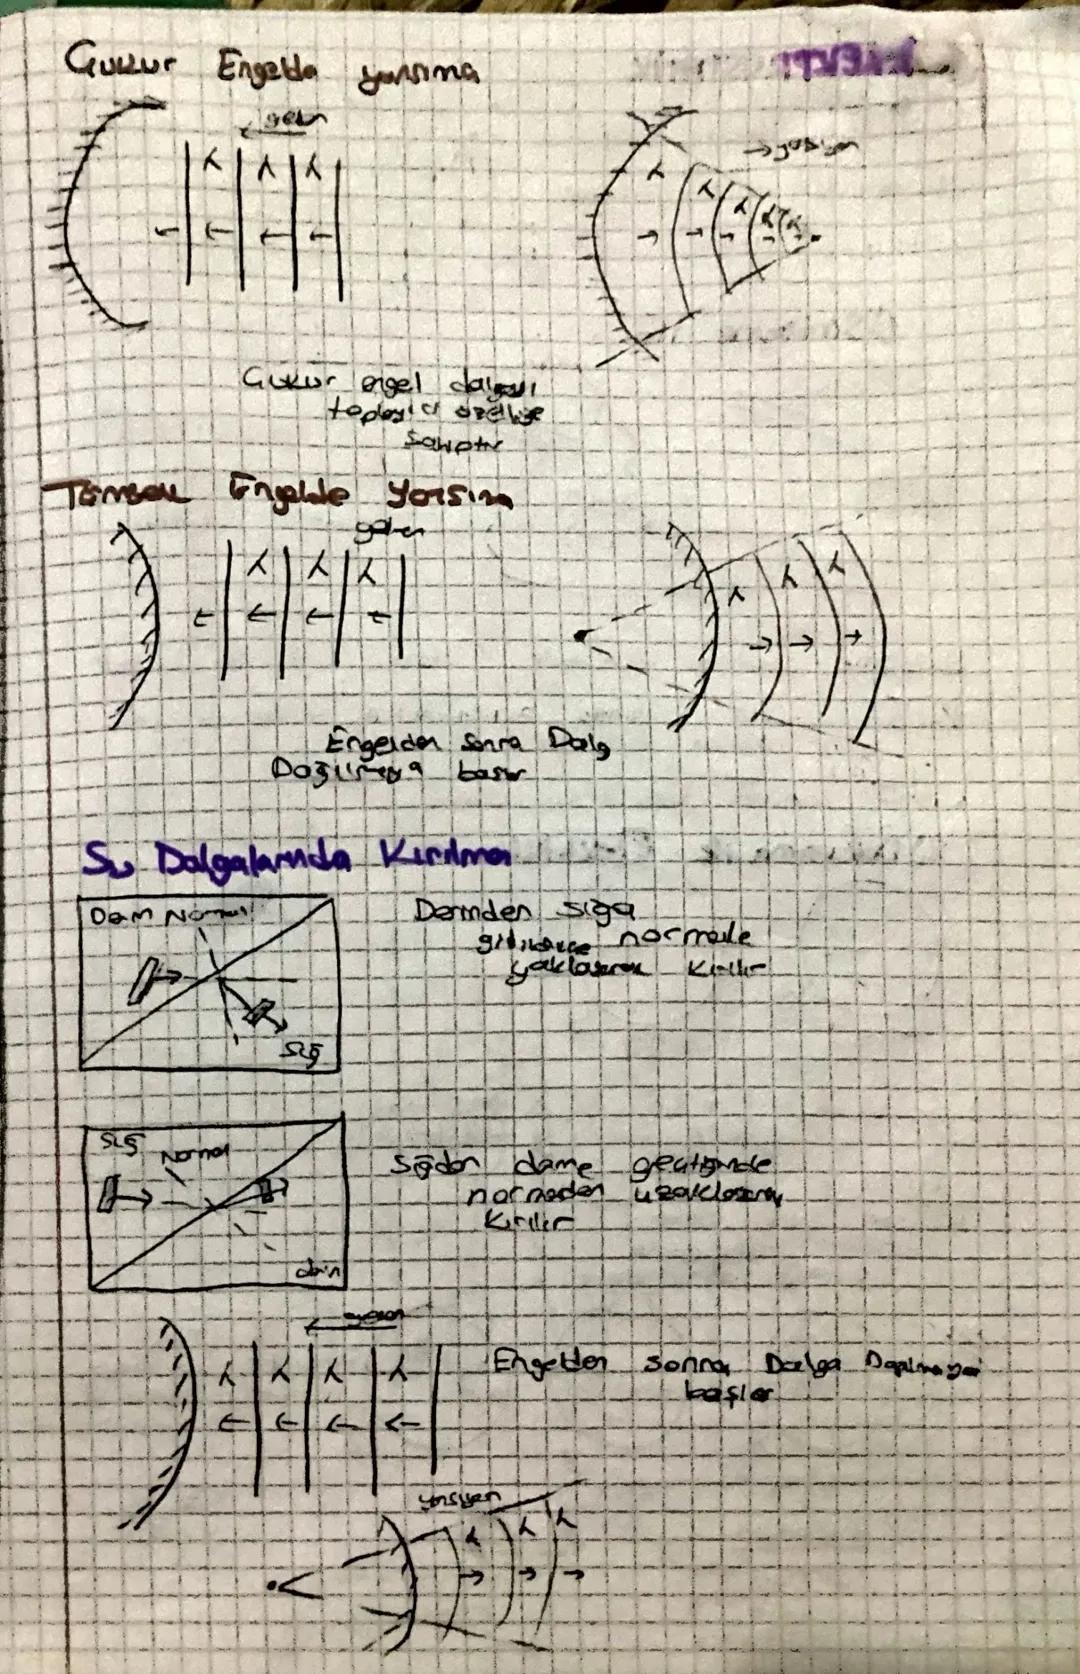 Çukur Engelde yansıma
gelen
λ λ λ
→ yansıyan
λ λ λ λ λ
Çukur engel dalgayı
toplayıcı özelliğe
sahiptir
Tümsek Engelde Yansıma
gelen
λ λ λ
λ λ λ
Engelden Sonra Dalg
Dağılmaya başlr
Su Dalgalarında Kırılma
Derin Normal
Sığ
Derinden sığa
gidildikçe normale
yaklaşarak Kırılır
Sığ Normal
derin
Sığdan derine geçtiğinde
normalden uzaklaşarak
Kırılır
gelen
λ λ λ λ
Engelden sonra Dalga Dağılmaya
başlar
yansıyan
λ λ λ